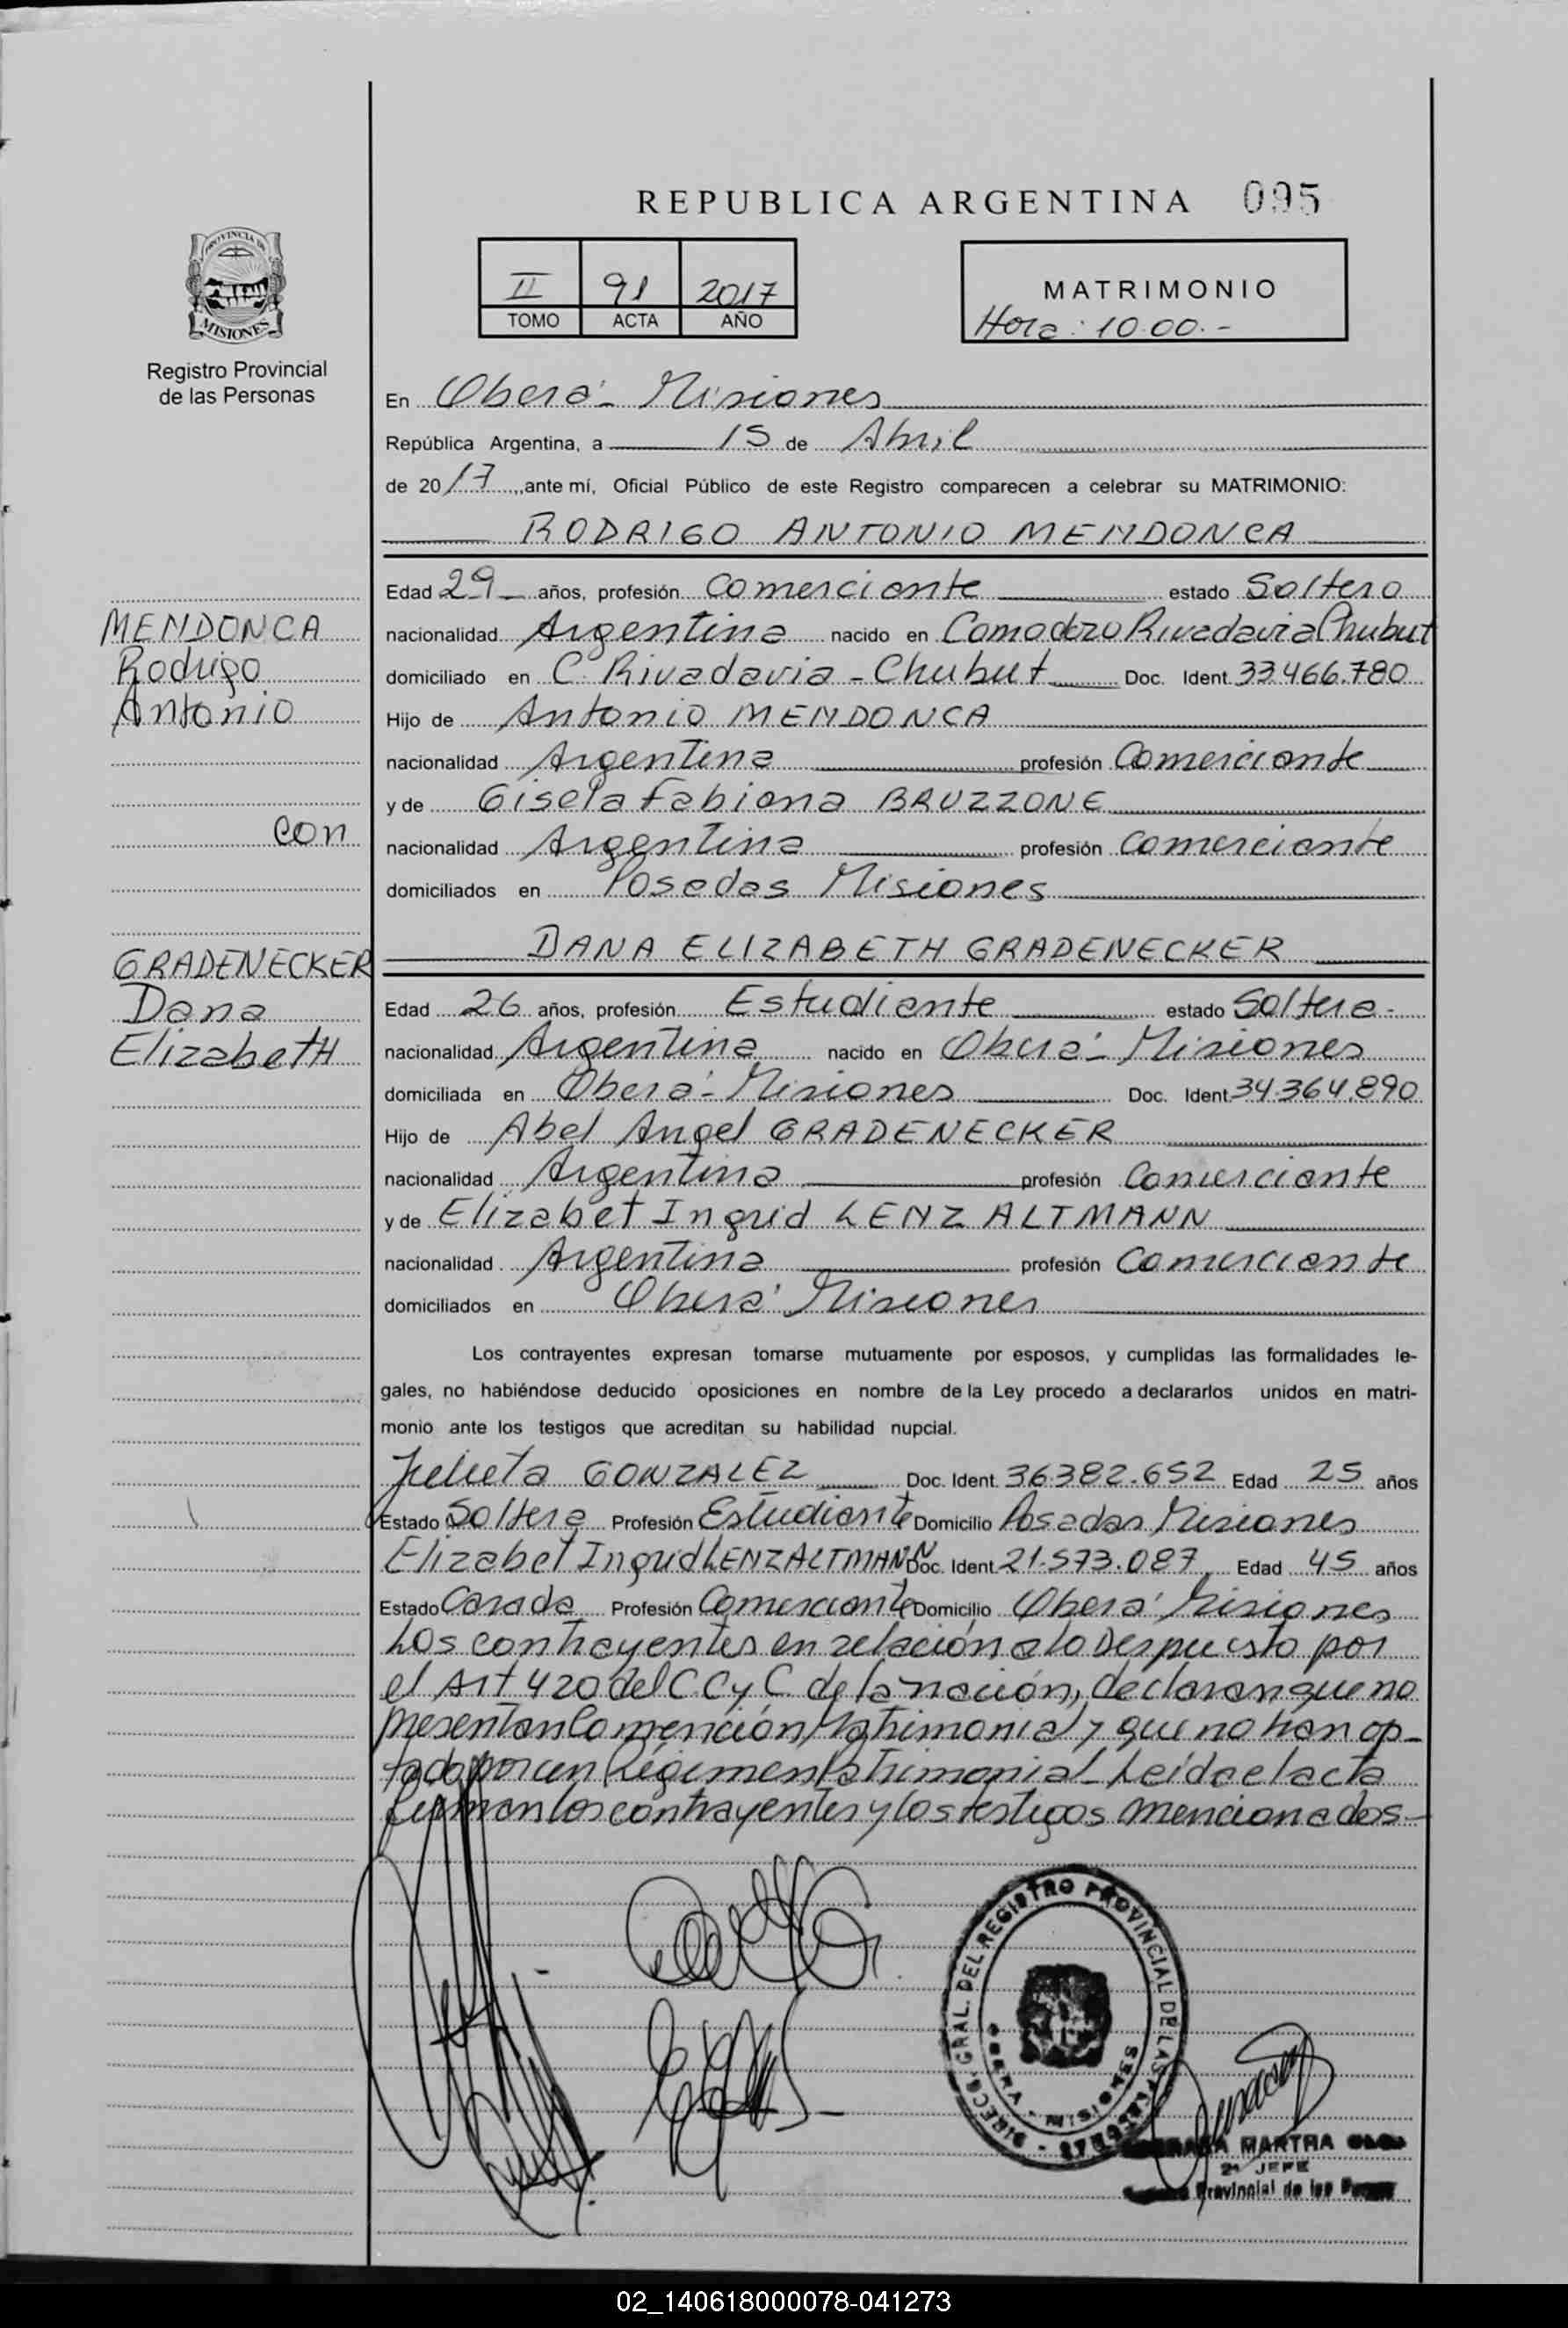 REPUBLICA ARGENTINA 095
PROVINCIA DE
MISIONES
Registro Provincial
de las Personas
II 91 2017
TOMO ACTA AÑO
MATRIMONIO
Hora: 10.00.-
En Oberá - Misiones
República Argentina, a 15 de Abril
de 2017, ante mí, Oficial Público de este Registro comparecen a celebrar su MATRIMONIO:
RODRIGO ANTONIO MENDONCA
Edad 29 años, profesión Comerciante estado Soltero
MENDONCA
nacionalidad Argentina nacido en Comodoro Rivadavia Chubut
Rodrigo
domiciliado en C. Rivadavia - Chubut Doc. Ident. 33.466.780
Antonio
Hijo de Antonio MENDONCA
nacionalidad Argentina profesión Comerciante
y de Gisela Fabiana BRUZZONE
con
nacionalidad Argentina profesión Comerciante
domiciliados en Posadas Misiones
DANA ELIZABETH GRADENECKER
GRADENECKER
Dana
Edad 26 años, profesión Estudiante estado Soltera-
Elizabeth
nacionalidad Argentina nacido en Oberá - Misiones
domiciliada en Oberá - Misiones Doc. Ident. 34.364.890
Hijo de Abel Angel GRADENECKER
nacionalidad Argentina profesión Comerciante
y de Elizabet Ingrid LENZ ALTMANN
nacionalidad Argentina profesión Comerciante
domiciliados en Oberá Misiones
Los contrayentes expresan tomarse mutuamente por esposos, y cumplidas las formalidades le-
gales, no habiéndose deducido oposiciones en nombre de la Ley procedo a declararlos unidos en matri-
monio ante los testigos que acreditan su habilidad nupcial.
Julieta GONZALEZ Doc. Ident. 36.382.652 Edad 25 años
Estado Soltera Profesión Estudiante Domicilio Posadas Misiones
Elizabet Ingrid LENZ ALTMANN Doc. Ident. 21.573.087 Edad 45 años
Estado Casada Profesión Comerciante Domicilio Oberá Misiones
Los contrayentes en relación a lo Despuesto por
el Art 420 del C.C y C. de la nación, declaran que no
presentan Comención Matrimonial y que no han op-
tado por un Régimen Patrimonial - Leída el acta
firman los contrayentes y los testigos mencionados-
DIRECC. GRAL. DEL REGISTRO PROVINCIAL DE LAS PERSONAS
OBERA - MISIONES
MARTRA
2º JEFE
Provincial de las
02_140618000078-041273